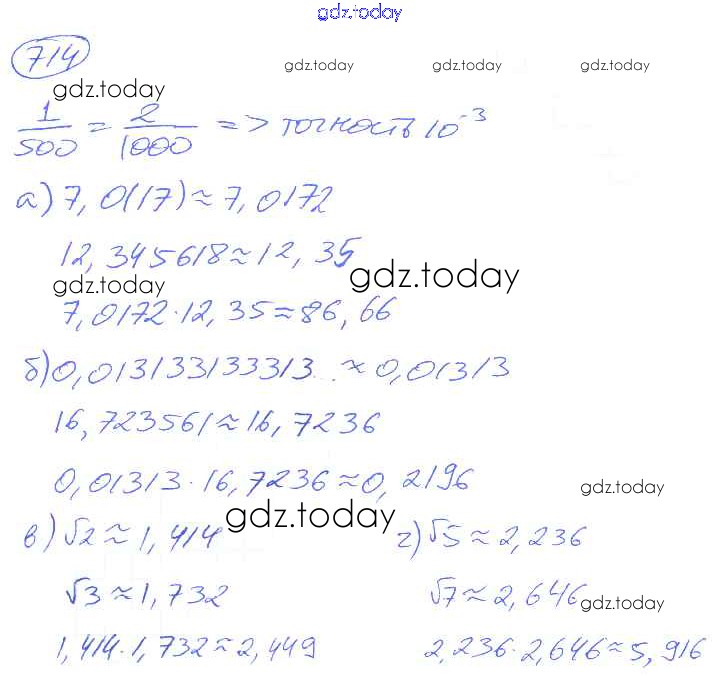 gdz.today
714
gdz.today gdz.today gdz.today
gdz.today
1/500 = 2/1000 => точность 10⁻³
а) 7,0(17) ≈ 7,0172
12,345618 ≈ 12,35
gdz.today
gdz.today
7,0172·12,35 ≈ 86,66
б) 0,013133133313... ≈ 0,01313
16,723561 ≈ 16,7236
0,01313·16,7236 ≈ 0,2196
gdz.today
gdz.today
в) √2 ≈ 1,414 г) √5 ≈ 2,236
√3 ≈ 1,732 √7 ≈ 2,646
gdz.today
1,414·1,732 ≈ 2,449 2,236·2,646 ≈ 5,916